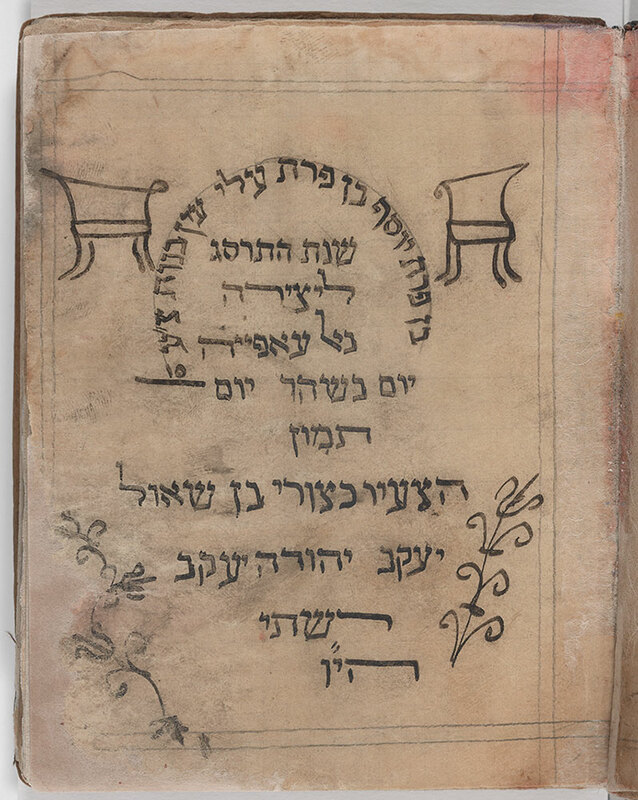 בן פרת יוסף בן פרת עלי עין בנות
שנת התרסג
ליצירה
בל עאפייה
יום בשהר יום
תמוז
הצעיר בן שאול
יעקב יהודה יעקב
הי״ו